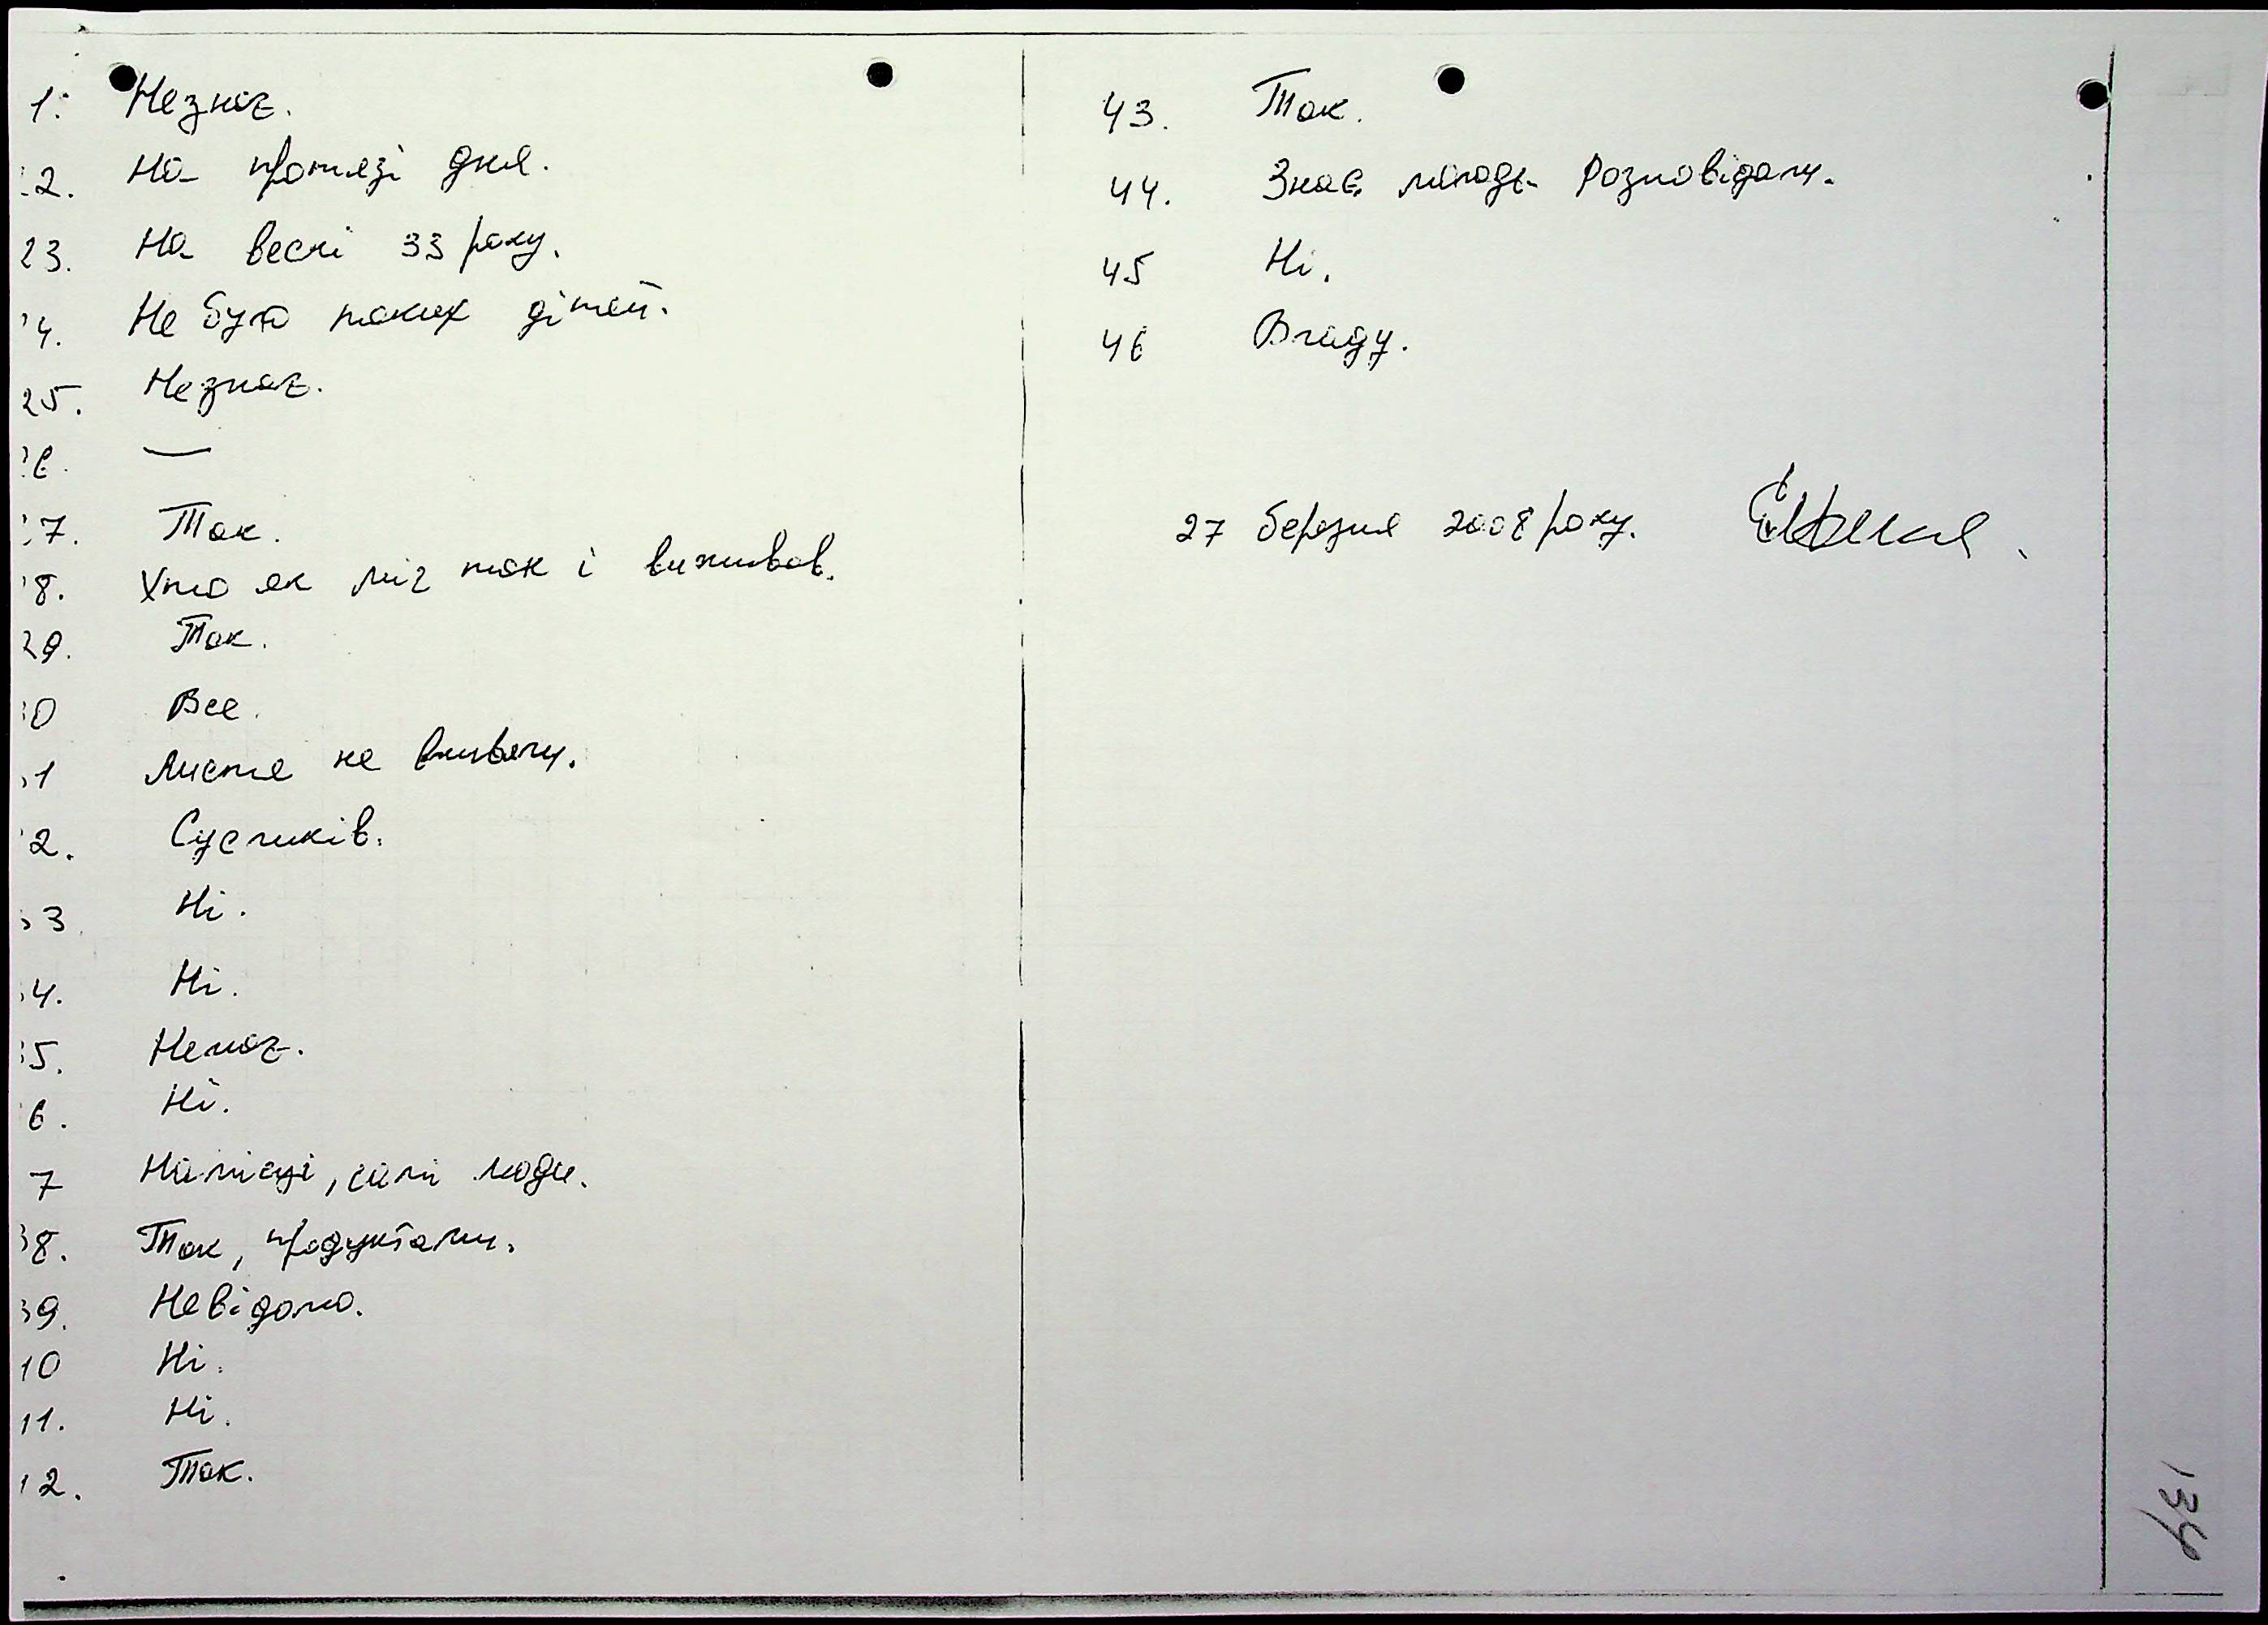 1. Незнає.
2. На протязі дня.
23. На весні 33 року.
4. Не було таких дітей.
25. Не знає.
6. —
7. Так.
8. Хто як міг так і виживав.
29. Так.
0 Все.
1 Листя не вживали.
2. Сусликів.
3 Ні.
4. Ні.
5. Немає.
6. Ні.
7 На місці, самі люди.
38. Так, продуктами.
39. Невідомо.
10 Ні.
11. Ні.
12. Так.
43. Так.
44. Знає молодь. Розповідали.
45 Ні.
46 Владу.
27 березня 2008 року.
134